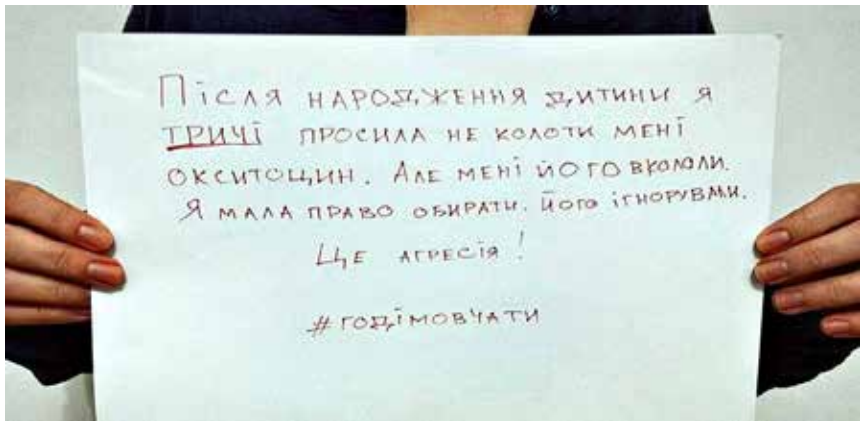 Після народження дитини я
тричі просила не колоти мені
окситоцин. Але мені його вкололи.
Я мала право обирати. Його ігнорували.
Це агресія!
#годімовчати